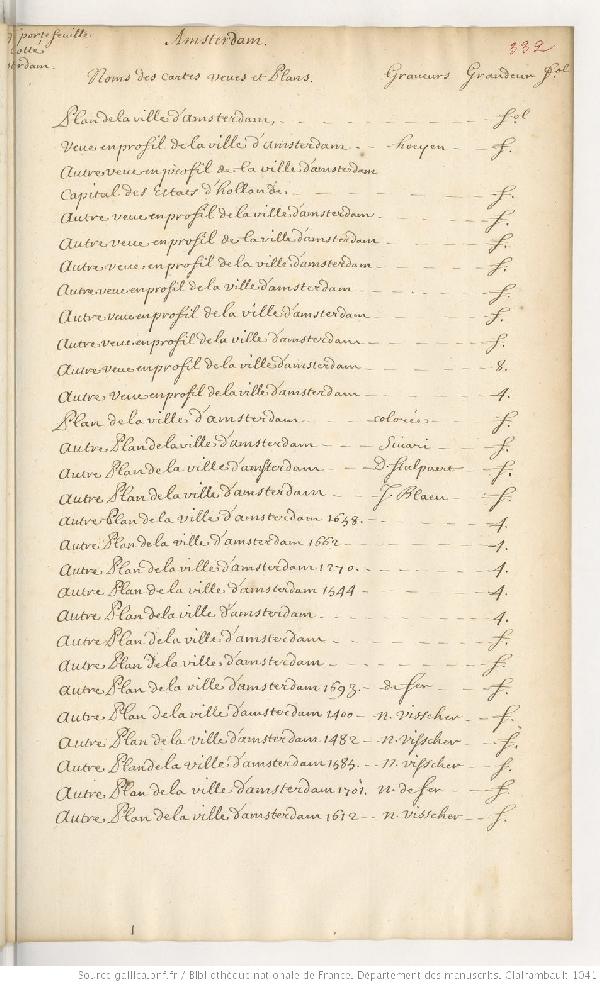 portefeuille
Amsterdam.
332
Noms des cartes veues et Plans. Graveurs Grandeur
Plan de la ville d'amsterdam, - - - - - - - fol
Veue en profil de la ville d'amsterdam - - - f.
Autre veue en profil de la ville d'amsterdam
Capital des Estats d'hollande. - - - - - f.
Autre veue en profil de la ville d'amsterdam - - - - - f.
Autre veue en profil de la ville d'amsterdam - - - - - f.
Autre veue en profil de la ville d'amsterdam - - - - - f.
Autre veue en profil de la ville d'amsterdam - - - - - f.
Autre veue en profil de la ville d'amsterdam - - - - - f.
Autre veue en profil de la ville d'amsterdam - - - - - f.
Autre veue en profil de la ville d'amsterdam - - - - - 8.
Autre veue en profil de la ville d'amsterdam - - - - - 4.
Plan de la ville d'amsterdam - - - colorée - - f.
Autre Plan de la ville d'amsterdam - - - - - f.
Autre Plan de la ville d'amsterdam - - D. Stalpaert - f.
Autre Plan de la ville d'amsterdam - - J. Blaeu - f.
Autre Plan de la ville d'amsterdam 1648. - - - - - 4.
Autre Plan de la ville d'amsterdam 1662 - - - - - 4.
Autre Plan de la ville d'amsterdam 1270. - - - - - 4.
Autre Plan de la ville d'amsterdam 1544 - - - - - 4.
Autre Plan de la ville d'amsterdam - - - - - 4.
Autre Plan de la ville d'amsterdam - - - - - f.
Autre Plan de la ville d'amsterdam - - - - - f.
Autre Plan de la ville d'amsterdam 1693. - de fer - - f.
Autre Plan de la ville d'amsterdam 1400 - - n. visscher - - f.
Autre Plan de la ville d'amsterdam 1482 - - n. visscher - - f.
Autre Plan de la ville d'amsterdam 1585. - - n. visscher - - f.
Autre Plan de la ville d'amsterdam 1701. n. de fer - - f.
Autre Plan de la ville d'amsterdam 1612 - - n. visscher - - f.
Source gallica.bnf.fr / Bibliothèque nationale de France. Département des manuscrits. Clairambault 1041